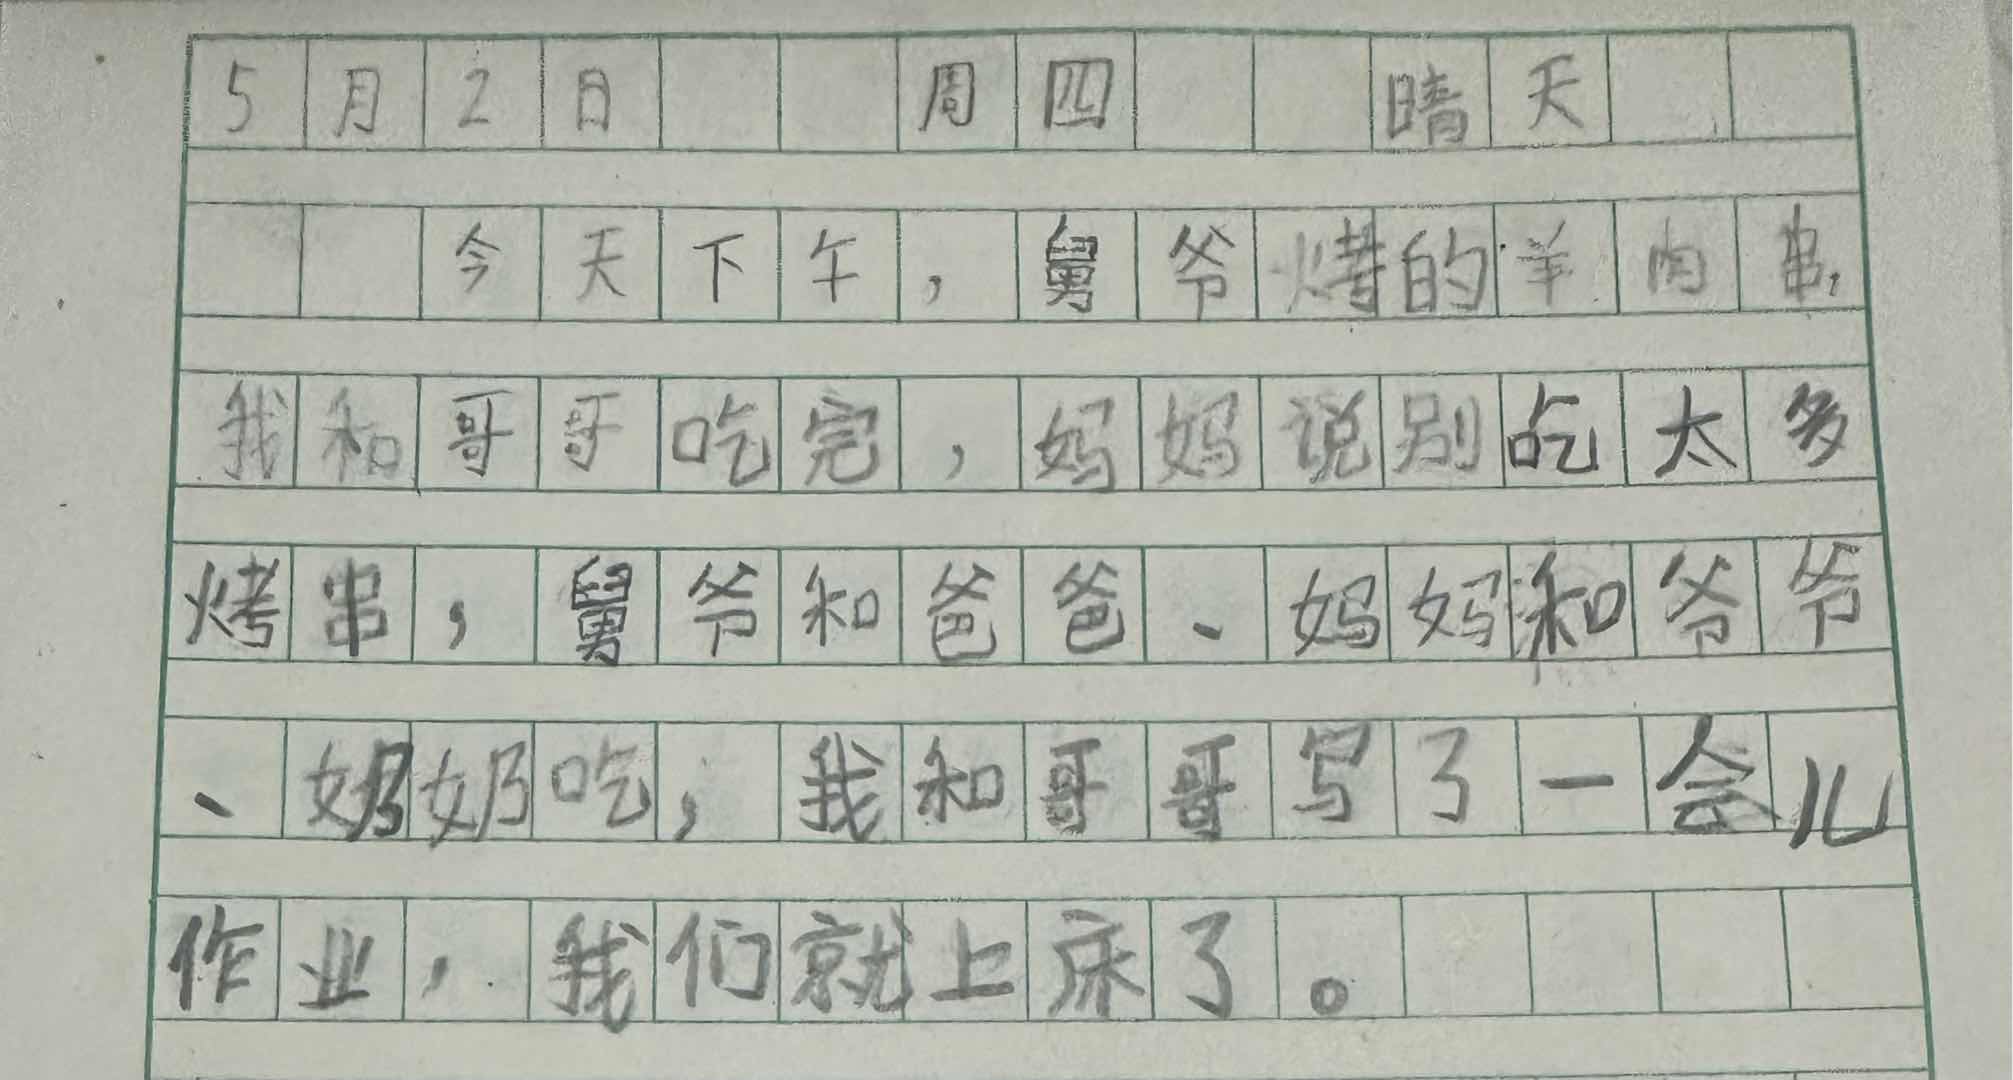 5月2日 周四 晴天
今天下午，舅爷烤的羊肉串，
我和哥哥吃完，妈妈说别吃太多
烤串，舅爷和爸爸、妈妈和爷爷
、奶奶吃，我和哥哥写了一会儿
作业，我们就上床了。